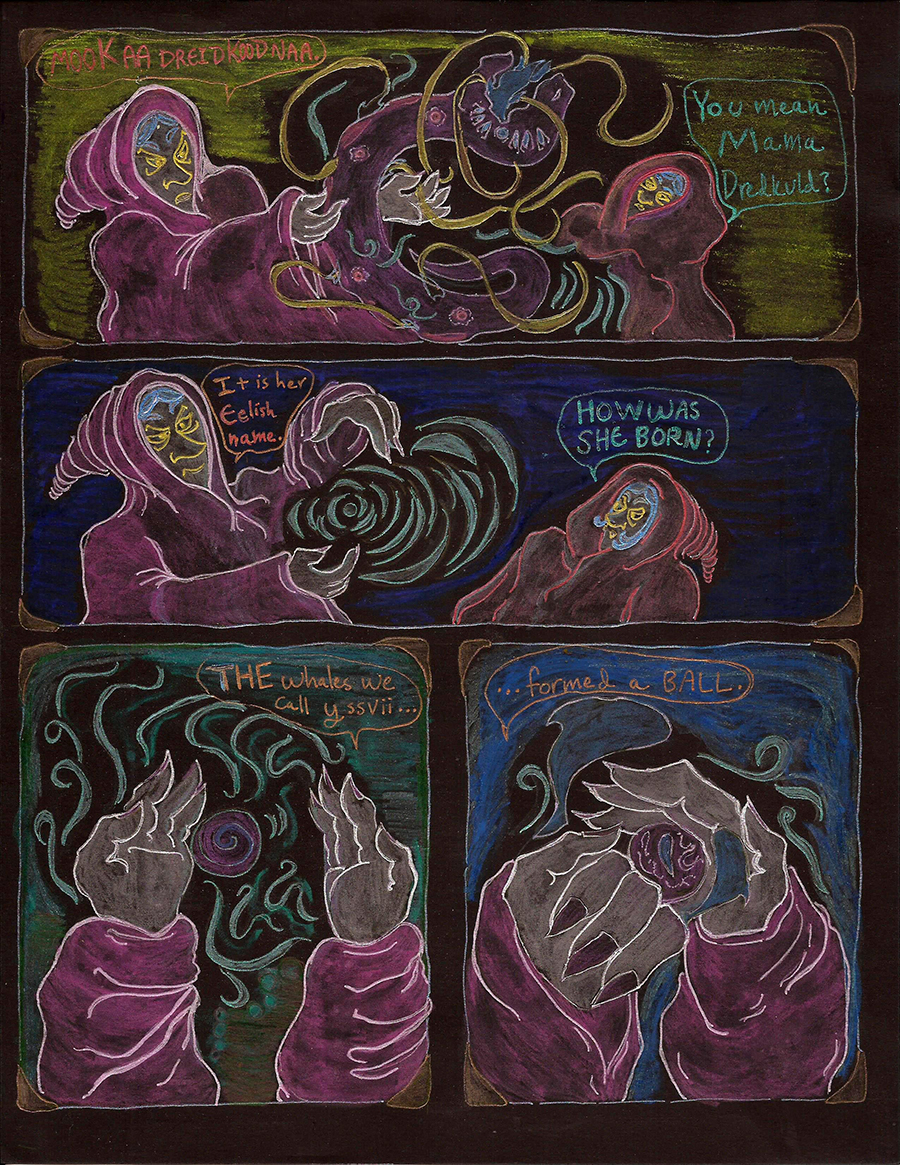 MOOK AA DREIDKOODNAA.
You mean
Mama
Dredkuld?
It is her
Eelish
name.
HOW WAS
SHE BORN?
THE whales we
call yssvii...
...formed a BALL.